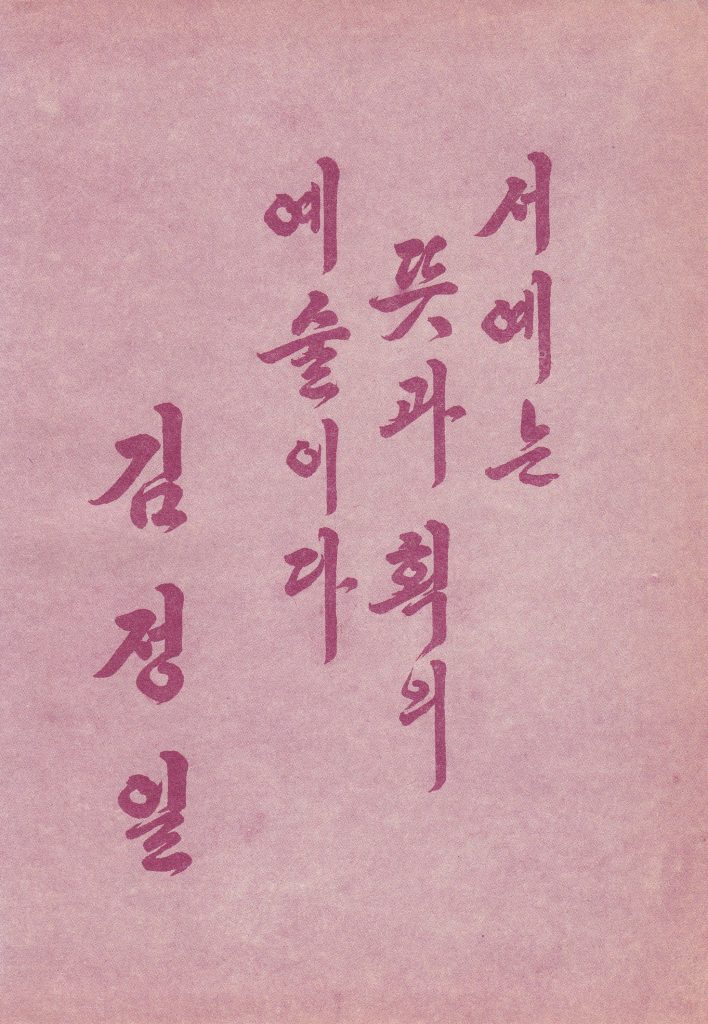 서예는
뜻과 획의
예술이다
김정일